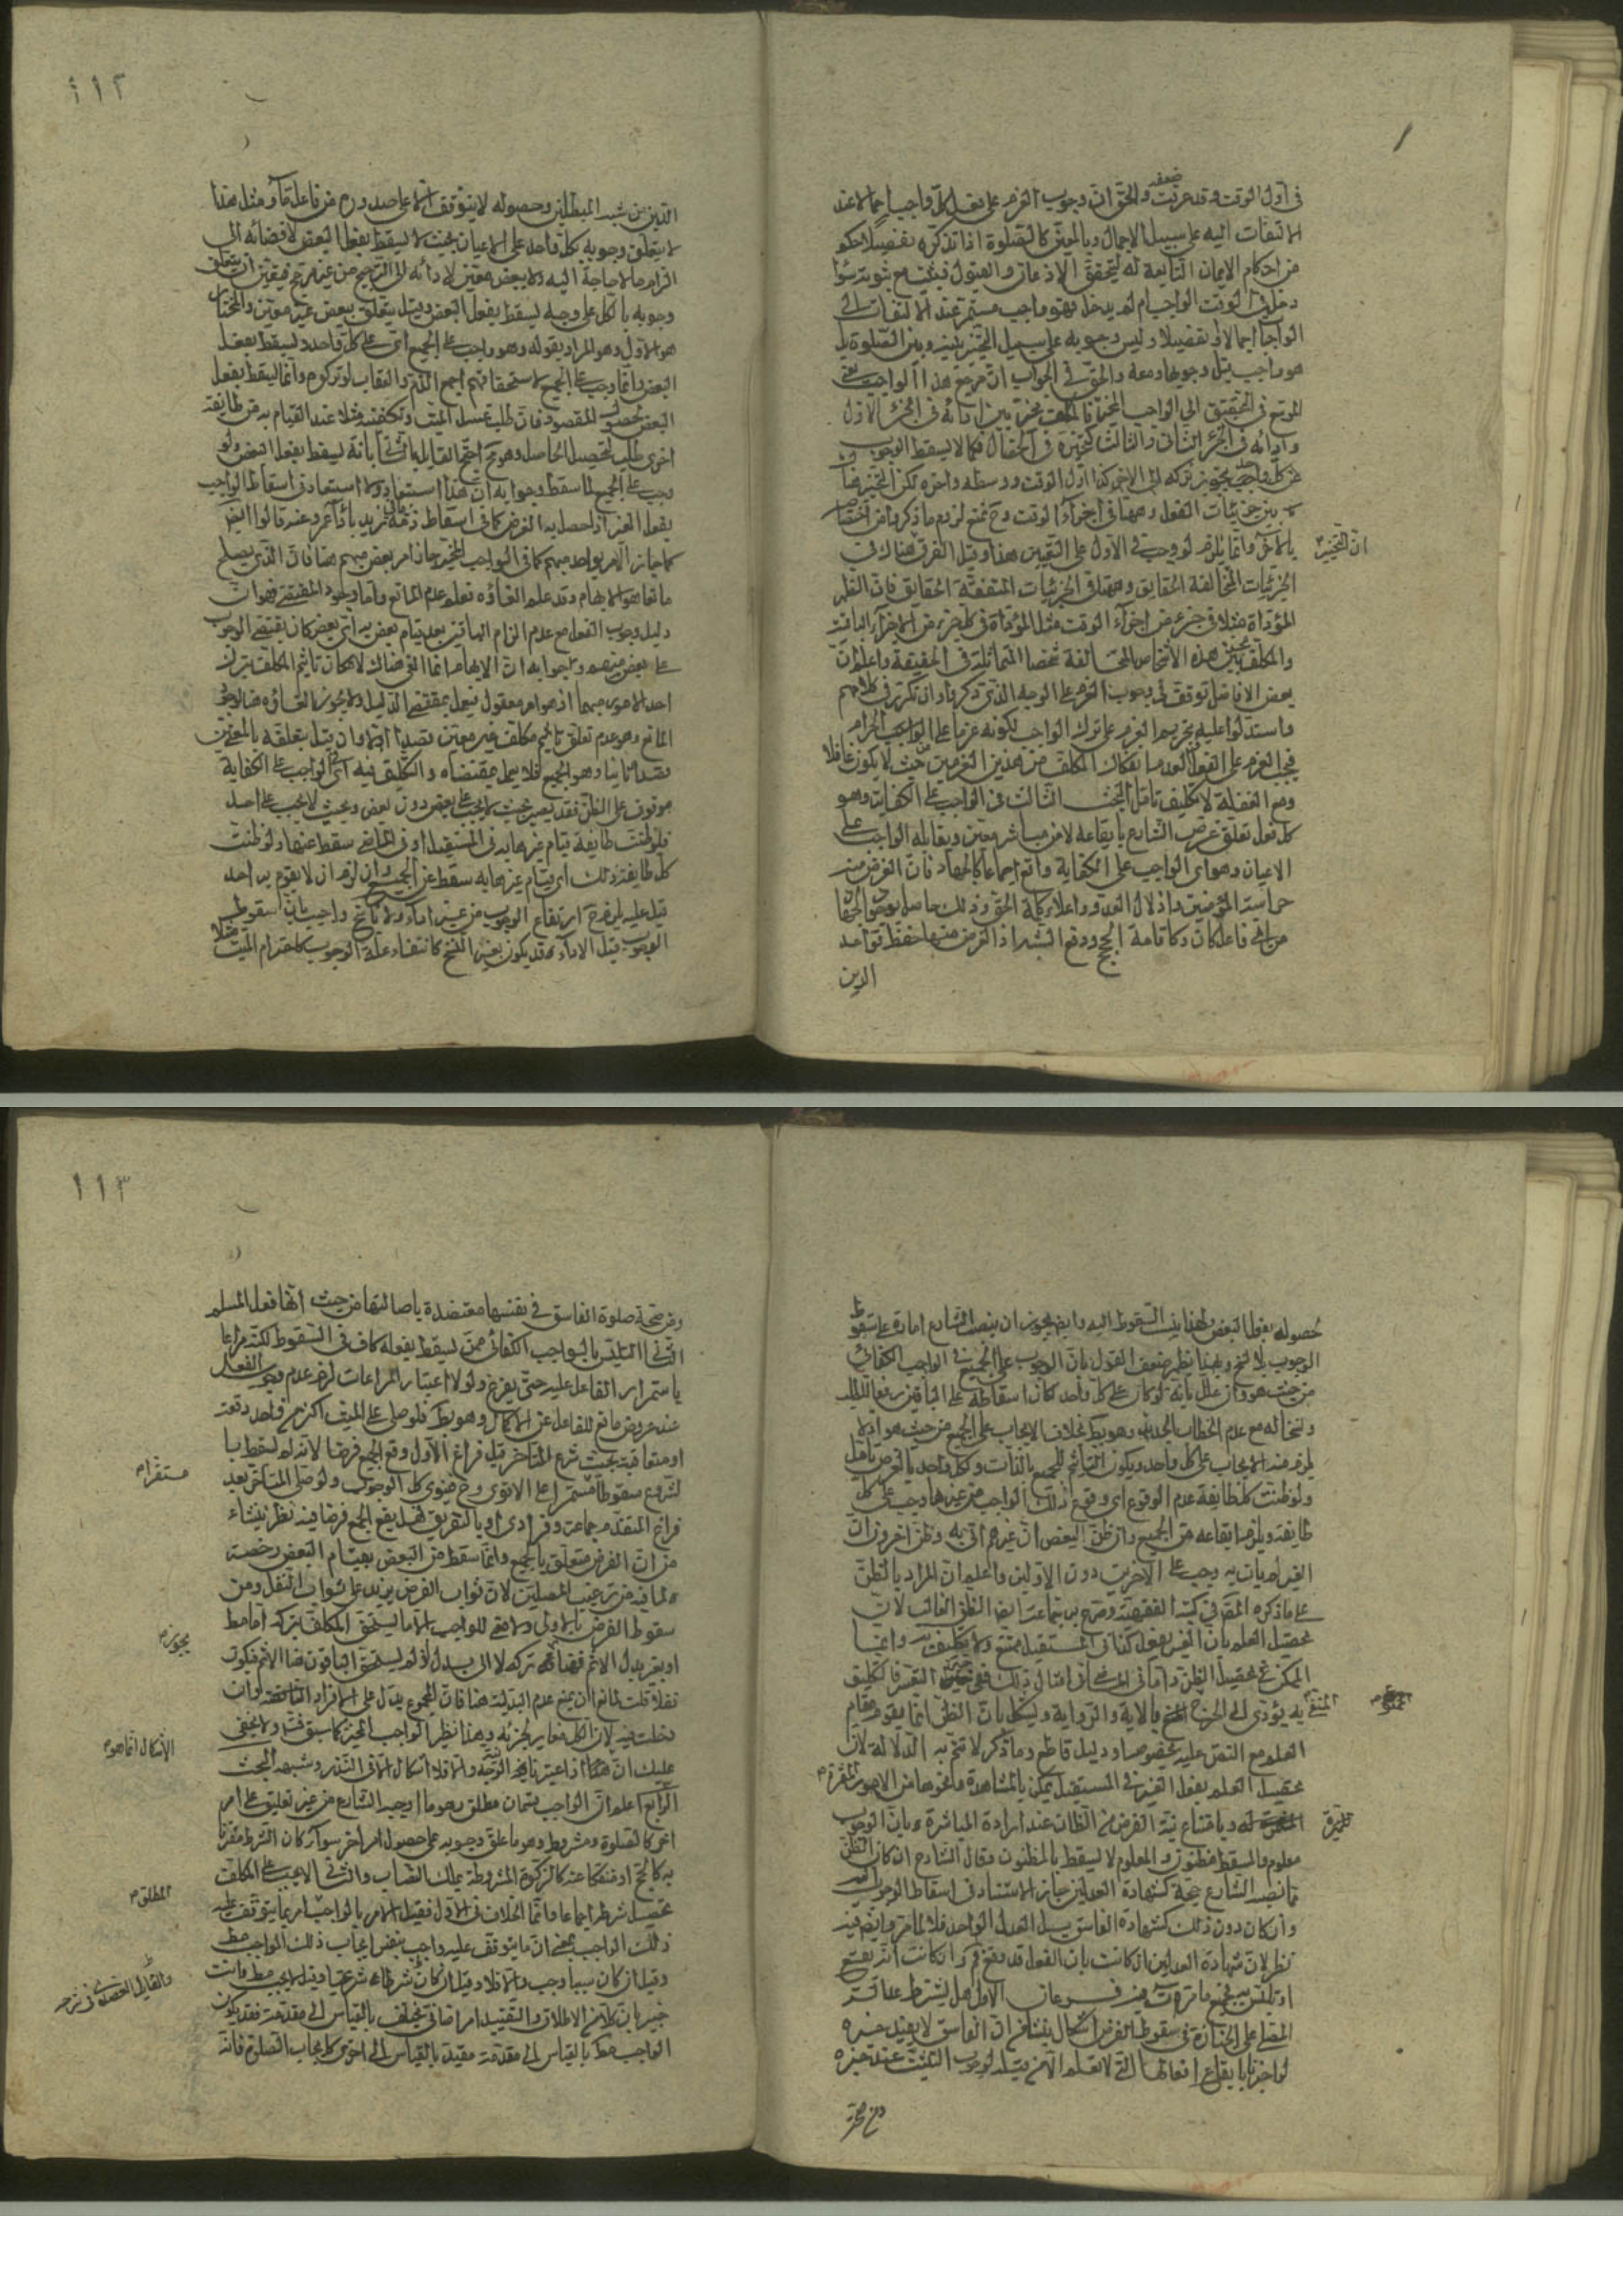 في اول الوقت وقد عرفت ضعفه والحق ان وجوب العزم على فعل كل واجب اجمالا عند
الالتفات اليه على سبيل الاجمال وبالمعين كالصلوة اذا تذكره بتفصيلا حكم
من احكام الايمان التابعة له ليتحقق الاذعان والقبول فيثبت مع ثبوته سواء
دخل الوقت الواجب ام لم يدخل فهو واجب مستمر عند الالتفات الى
الواجبا اجمالا او تفصيلا وليس وجوبه على سبيل التخيير بينه وبين الصلوة بل
هو واجب قبل وجوبها ومعه والحق في الجواب ان مرجع هذا الواجب يعني
الموسع في التحقيق الى الواجب المخير فالمكلف مخير بين ادائه في الجزء الاول
وادائه في الجزء الثاني والثالث كتخييره في الخصال فكما لا يسقط الوجوب
عن كل واحد بجواز تركه الى الاخر كذا اول الوقت ووسطه واخره لكن التخيير هنا
بين جزئيات الفعل وهنا في اجزاء الوقت وح نمنع لزوم ما ذكروا من اختصا
ان التخيير
بالاخر وانما يلزم لو وجب في الاول على التعيين هذا وقيل الفرق هناك في
الجزئيات المتخالفة الحقايق وهنا في الجزئيات المتفقة الحقايق فان الظهر
المؤداة مثلا في جزء من اجزاء الوقت مثل المؤداة في كل جزء من الاجزاء الباقية
والمكلف مخير بين هذه الاشخاص المتخالفة بتشخصها المتماثلة في الحقيقة واعلم ان
بعض الافاضل توقف في وجوب العزم على الوجه الذي ذكر وان تكرر في كلامهم
واستدلوا عليه بتحريم العزم على ترك الواجب لكونه عزما على الحرام
فيجب العزم على الفعل لعدم انفكاك المكلف من هذين العزمين حيث لا يكون غافلا
ومع الغفلة لا تكليف تامل البحث الثالث في الواجب على الكفاية وهو
كل فعل تعلق غرض الشارع بايقاعه لا من مباشر معين ويقابله الواجب على
الاعيان وهو اي الواجب على الكفاية واقع اجماعا كالجهاد فان الغرض منه
حراسة المؤمنين واذلال العدو واعلاء كلمة الحق وذلك حاصل بوجود الجهاد
من اي فاعل كان وكاقامة الحجج ودفع الشبه اذ الغرض منها حفظ قواعد
الدين
١١٢
الدين من شبه المبطلين وحصوله لا يتوقف الا على صدوره من فاعل ما ومثل هذا
لا يتعلق وجوبه بكل واحد على الاعيان بحيث لا يسقط بفعل البعض لافضائه الى
الزام ما لا حاجة اليه ولا ببعض معين لادائه الى الترجيح من غير مرجح فتعين ان يتعلق
وجوبه بالكل على وجه يسقط بفعل البعض وقيل يتعلق ببعض غير معين والمختار
هو الاول وهو المراد بقوله وهو واجب على الجميع اي على كل واحد ويسقط بفعل
البعض وانما وجب على الجميع لاستحقاقهم اجمع الذم والعقاب لو تركوه وانما يسقط بفعل
البعض لحصول المقصود فان طلب غسل الميت وتكفينه مثلا عند القيام به من طائفة
اخرى طلب لتحصيل الحاصل وهو مح احتج القايل بالثاني بانه يسقط بفعل البعض ولو
وجب على الجميع لما سقط وجوابه ان هذا استبعاد ولا استبعاد في اسقاط الواجب
بفعل الغير اذا حصل به الغرض كما في اسقاط ذمة زيد باداء عمرو عنه قالوا ايضا
كما جاز الامر بواحد مبهم كما في الواجب المخير جاز امر بعض مبهم هنا فان الذي يصلح
مانعا هو الابهام وقد علم الغاؤه فعلم عدم المانع واما وجود المقتضي فهو ان
دليل وجوب الفعل مع عدم الزام الباقين بعد قيام بعض به اي بعض كان يقتضي الوجوب
على بعض مبهم وجوابه ان الابهام انما الغي هناك لامكان تاثيم المكلف بترك
احد الامور مبهما اذ هو امر معقول فيعمل بمقتضى الدليل ولا يجوز الغاؤه هنا لوجود
المانع وهو عدم تعلق تاثيم مكلف غير معين قصدا اولا وان قيل بتعلقه بالمعين
قصدا ثانيا وهو الجميع فلا يعمل بمقتضاه والتكليف فيه اي في الواجب على الكفاية
موقوف على الظن فقد يصير بحيث لا يجب على بعض دون بعض وبحيث لا يجب على احد
فلو ظنت طايفة قيام غيرها به في المستقبل او في الماضي سقط عنها ولو ظنت
كل طايفة ذلك اي قيام غيرها به سقط عن الجميع وان لزم ان لا يقوم به احد
قيل عليه يلزم ح ارتفاع الوجوب من غير اداء ولا ناسخ واجيب بان سقوط
الوجوب قبل الاداء قد يكون بغير النسخ كانتفاء علة الوجوب كاحترام الميت مثلا
حصوله بفعل البعض ولهذا ينسب السقوط اليه وايضا يجوز ان ينصب الشارع امارة على سقوط
الوجوب بلا نسخ وبهذا يظهر ضعف القول بان الوجوب على الجميع في الواجب الكفائي
من حيث هو وان علل بانه لو كان على كل واحد كان اسقاطه على الباقين رفعا للطلب
ونسخا له مع عدم الخطاب الجديد وهو بط بخلاف الايجاب على الجميع من حيث هو اذ لا
يلزم منه الايجاب على كل واحد ويكون التاثيم للجميع بالذات ولكل واحد بالعرض تامل
ولو ظنت كل طايفة عدم الوقوع اي وقوع ذلك الواجب من غيرها وجب على كل
طايفة ويلزم ايقاعه من الجميع وان ظن البعض ان غيرهم اتى به وظن اخرون ان
الغير لم يات به وجب على الاخرين دون الاولين واعلم ان المراد بالظن
على ما ذكره المص في كتبه الفقهية وصرح به جماعة ايضا الظن الغالب لان
تحصيل العلم بان الغير يفعل كذا في المستقبل ممتنع ولا تكليف به وانما
الممكن تحصيل الظن واما في الماضي
المنفي به يؤدي الى الحرج بالاية والرواية ويشكل بان الظن انما يقوم مقام
العلم مع النص عليه بخصوصه او دليل قاطع وما ذكر لا تتم به الدلالة لان
تحصيل العلم بفعل الغير في المستقبل ممكن بالمشاهدة ونحوها من الامور المقررة
وبامتناع نية الفرض من الظان عند ارادة المباشرة وبان الوجوب
معلوم والمسقط مظنون والمعلوم لا يسقط بالمظنون وقال الشارح ان كان الظن
مما نصبه الشارع حجة كشهادة العدلين جاز الاستناد في اسقاط الوجوب اليه
وان كان دون ذلك كشهادة الفاسق بل العدل الواحد فلا لما مر وايضا فيه
نظر لان شهادة العدلين ان كانت بان الفعل قد وقع وان كانت انه يقع
فرعان الاول هل يشترط عدالة
المصلي على الجنازة في سقوط الفرض اشكال ينشا من ان الفاسق لا يفيد خبره
لو اخبرنا بايقاع افعالها التي لا تعلم الا من قبله لوجوب التثبت عند خبره
ومن صحة
١١٣
ومن صحة صلوة الفاسق في نفسها معتضدة باصالتها من حيث انها فعل المسلم
الثاني التلبس بالواجب الكفائي ممن يسقط بفعله كاف في السقوط لكنه مراعا
باستمرار الفاعل عليه حتى يفرغ ولولا اعتبار المراعات لزم عدم وجوب الفعل
عند عروض مانع للفاعل عن الاكمال وهو بط فلو صلى على الميت اكثر من واحد دفعة
او متعاقبة بحيث شرع المتاخر قبل فراغ الاول وقع الجميع فرضا لانه لم يسقط با
لشروع سقوطا مستقرا على الاقوى وح فينوي كل الوجوب ولو صلى المتاخر بعد
مستقرا
فراغ المتقدم جماعة وفرادى او بالتفريق فهل يقع الجميع فرضا فيه نظر ينشاء
من ان الفرض متعلق بالجميع وانما سقط من البعض بقيام البعض رخصة
ولما فيه من ترغيب المصلين لان ثواب الفرض يزيد على ثواب النفل ومن
سقوط الفرض بالاولى ولا معنى للواجب الا ما يستحق المكلف بتركه اما مط
يجوز
او بغير بدل الاثم فهنا تركه لا الى بدل لو لم يستحق الباقون هنا الاثم فيكون
نفلا قلت لمانع ان يمنع عدم البدلية هنا فان المجموع بدل على الافراد
دخلت فيه لان الكل مغاير لجزئه وهذا نظير الواجب المخير كما سبق ولا يخفى
الاشكال انما هو
عليك ان هذا اذا اعتبر نية الوجه والا فلا اشكال الا في النذر وشبهه البحث
الرابع اعلم ان الواجب قسمان مطلق وهو ما اوجبه الشارع من غير تعليق على امر
اخر كالصلوة ومشروط وهو ما علق وجوبه على حصول امر اخر سواء كان الشرط مقترنا
به كالحج او منفكا عنه كالزكوة المشروطة بملك النصاب والثاني لا يجب على المكلف
المطلق
تحصيل شرطه اجماعا وانما الخلاف في الاول فقيل الامر بالواجب امر بما يتوقف عليه
ذلك الواجب بمعنى ان ما يتوقف عليه واجب بنفس ايجاب ذلك الواجب مط
وقيل ان كان سببا وجب والا فلا وقيل ان كان شرطا شرعيا وقيل لا يجب مط وانت
خبير بان كلا من الاطلاق والتقييد امر اضافي يختلف بالقياس الى مقدمة فقد يكون
الواجب مط بالقياس الى مقدمة مقيدة بالقياس الى اخرى كايجاب الصلوة فانه